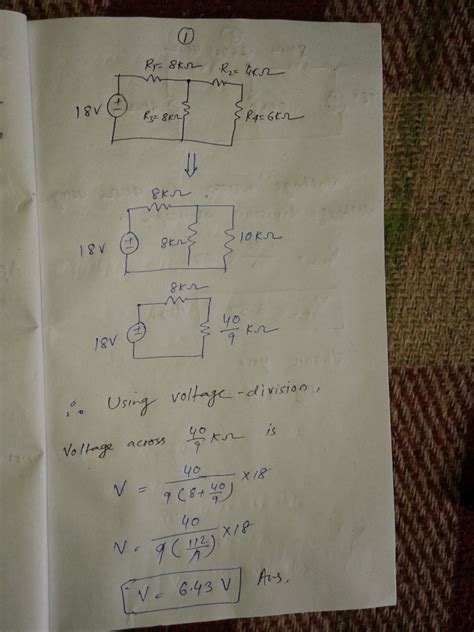 1
R1=8KΩ R2=4KΩ
18V R3=8KΩ R4=6KΩ
8KΩ
18V 8KΩ 10KΩ
8KΩ
18V 40/9 KΩ
∴ Using voltage-division,
Voltage across 40/9 KΩ is
V = 40/9(8+40/9) ×18
V = 40/9(112/9) ×18
V = 6.43 V Ans.